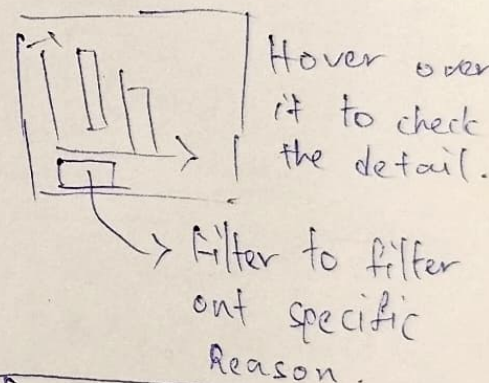 Hover over
it to check
the detail.
Filter to filter
out specific
Reason.